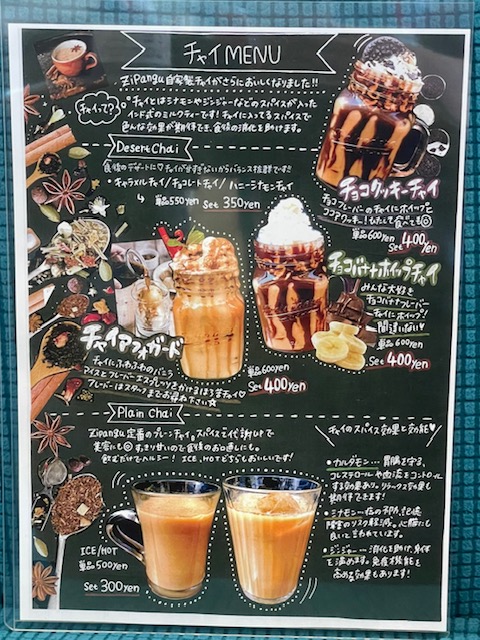 チャイMENU
Zipangu自家製チャイがさらにおいしくなりました!!
チャイって?
チャイとはシナモンやジンジャーなどのスパイスが入った
インド式のミルクティーです!チャイに入ってるスパイスで
色んな効果が期待でき、食後の消化を助けます。
Desert Chai
食後のデザートに♡チャイが甘すぎないからバランス抜群です!!
・キャラメルチャイ/チョコレートチャイ/ハニーシナモンチャイ
↳ 単品550yen Set 350yen
チョコクッキーチャイ
チョコフレーバーのチャイにホイップと
ココアクッキー!もりもり食べても☺
単品600yen
Set 400yen
チョコバナナホイップチャイ
みんな大好き
チョコバナナフレーバー
チャイにホイップ!
間違いない♡
単品600yen
Set 400yen
チャイアフォガード
チャイにふわふわのバニラ
アイスとフレーバーエスプレッソをかけるほろ苦チャイ♡
フレーバーはスタッフまでお尋ね下さい☆
単品600yen
Set 400yen
Plain Chai
Zipangu定番のプレーンチャイ。スパイスで代謝UPで
美容にも☺すっきり甘いので食後のお口直しにも。
飲むだけでヘルシー! ICE、HOTどちらもおいしいです!
ICE/HOT
単品500yen
Set 300yen
チャイのスパイス効果と効能♥
・カルダモン…胃腸を守る、
コレステロールや血流をコントロール
する効果あり。リラックス効果も
期待できます!
・シナモン…癌の予防、記憶
障害のリスク軽減。心臓にも
良いと言われています。
・ジンジャー…消化を助け、身体
を温めます。免疫機能を
高める効果もあります!